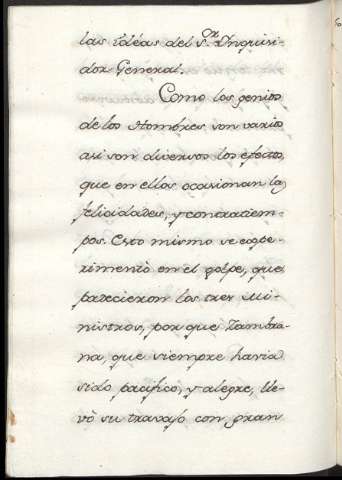 las idéas del S.or Ynquisi-
dor General.
Como los genios
de los Hombres son varios
asi son diversos los efectos,
que en ellos ocasionan las
felicidades, y contratiem-
pos. Esto mismo se expe-
rimentò en el golpe, que
padecieron los tres Mi-
nistros, por que Zambra-
na, que siempre havia
sido pacifico, y alegre, lle-
vò su travajo con gran